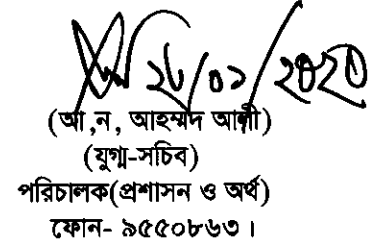 ২৮/০১/২০২০
(আ,ন, আহম্মদ আলী)
(যুগ্ম-সচিব)
পরিচালক(প্রশাসন ও অর্থ)
ফোন- ৯৫৫০৮৬৩।